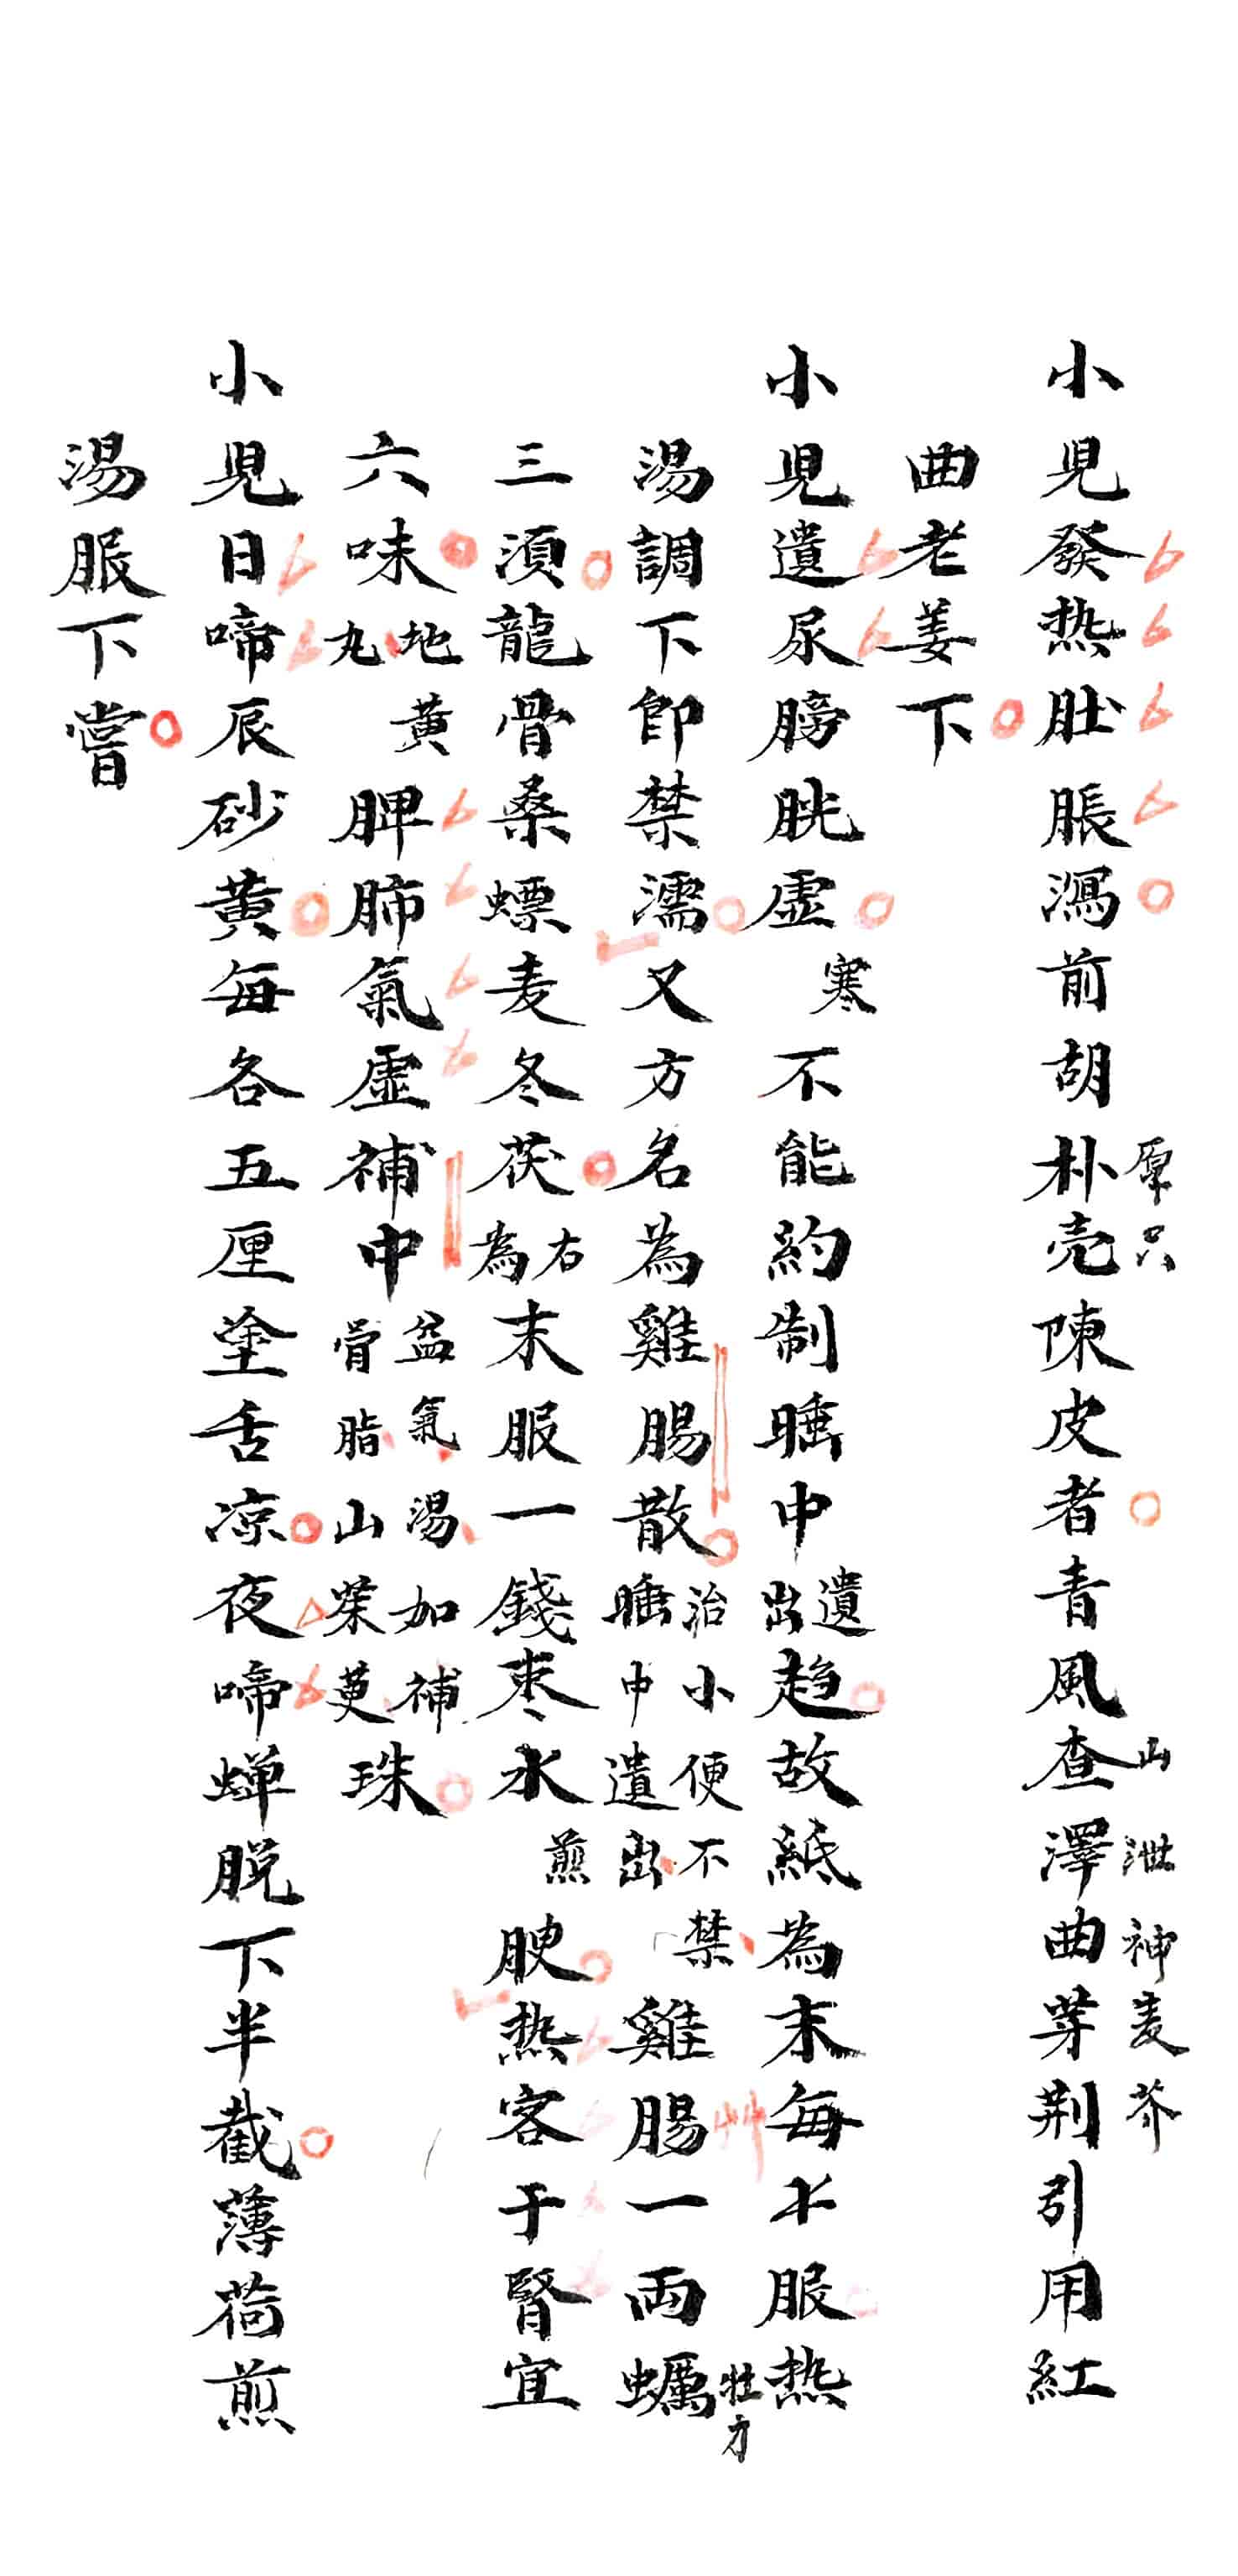 小児發热肚脹瀉前胡朴原売只陳皮者青風查山澤泄曲神芽麦荆芥引用紅
曲老姜下
小児遺尿膀胱虚寒不能約制睡中遺出趋故紙為末每卡服热
湯調下即禁濡又方名為雞腸散治小便不禁睡中遺出雞腸一両蠣牡力
三湏龍骨桑螵麦冬茯右為末服一錢枣水煎腴热客于腎宜
六味地黄丸脾肺氣虚補中益氣湯加補骨脂山茱萸珠
小児日啼辰砂黄每各五厘塗舌凉夜啼蝉脱下半截薄荷煎
湯服下嘗